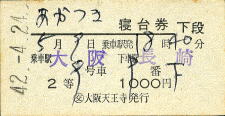 あかつき 寝台券 下段
5月9日 乗車駅発 8時40分
乗車駅 大阪 下車駅 長崎
2等 号車 番 下
1000円
大阪天王寺発行
42.-4.21